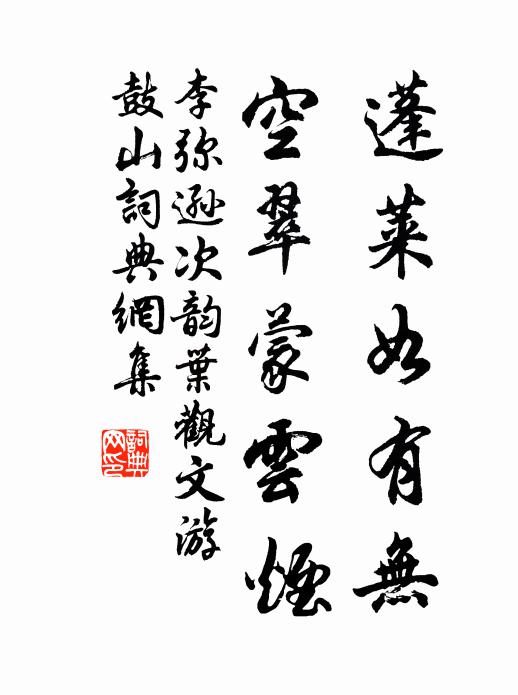 蓬萊如有無
空翠蒙雲煙
李弥遜次韵葉觀文游
鼓山詞典網集
詞典网印